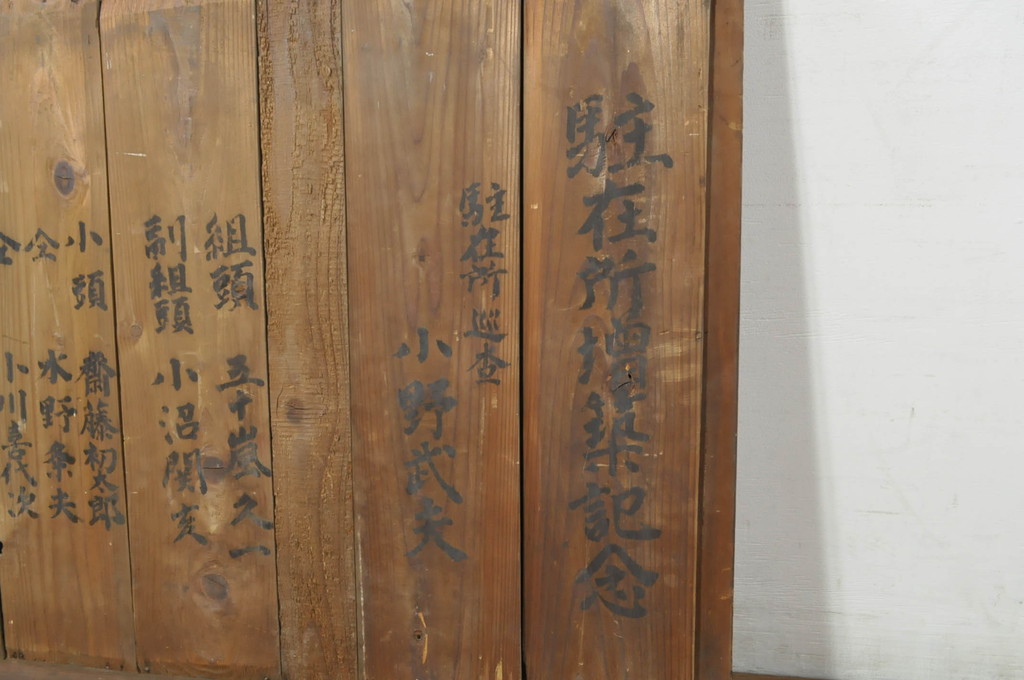 駐在所増築記念
駐在所巡査
小野武夫
組頭 五十嵐久一
副組頭 小沼関亥
小頭 齋藤初太郎
仝 水野条夫
仝 小川喜代次